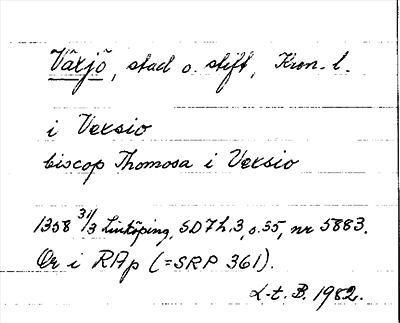 Växjö, stad o. stift, Kron. l.
i Vexsio
biscop Thomosa i Vexsio
1358 31/3 Linköping, SD 7 h. 3, s. 55, nr 5883.
Or i RAp (=SRP 361).
L-t. B. 1982.